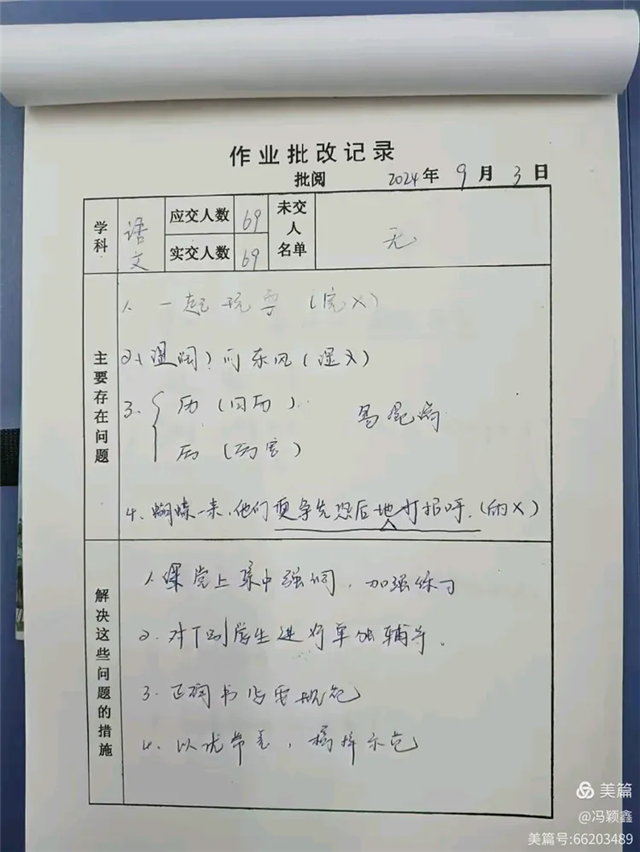 作业批改记录
批阅 2024年 9月 3日
学科 语文 应交人数 69 未交人名单 无
实交人数 69
主要存在问题
1、一起玩耍(完X)
2、(温润)的东风(湿X)
3. 历(日历)
厉(厉害) 易混淆
4、蝴蝶一来,他们更争先恐后地打招呼.(的X)
解决这些问题的措施
1、课堂上集中强调,加强练习
2. 对个别学生进行单独辅导.
3. 正确书写要规范
4. 以优带差,榜样示范
美篇
@冯颖鑫
美篇号:66203489